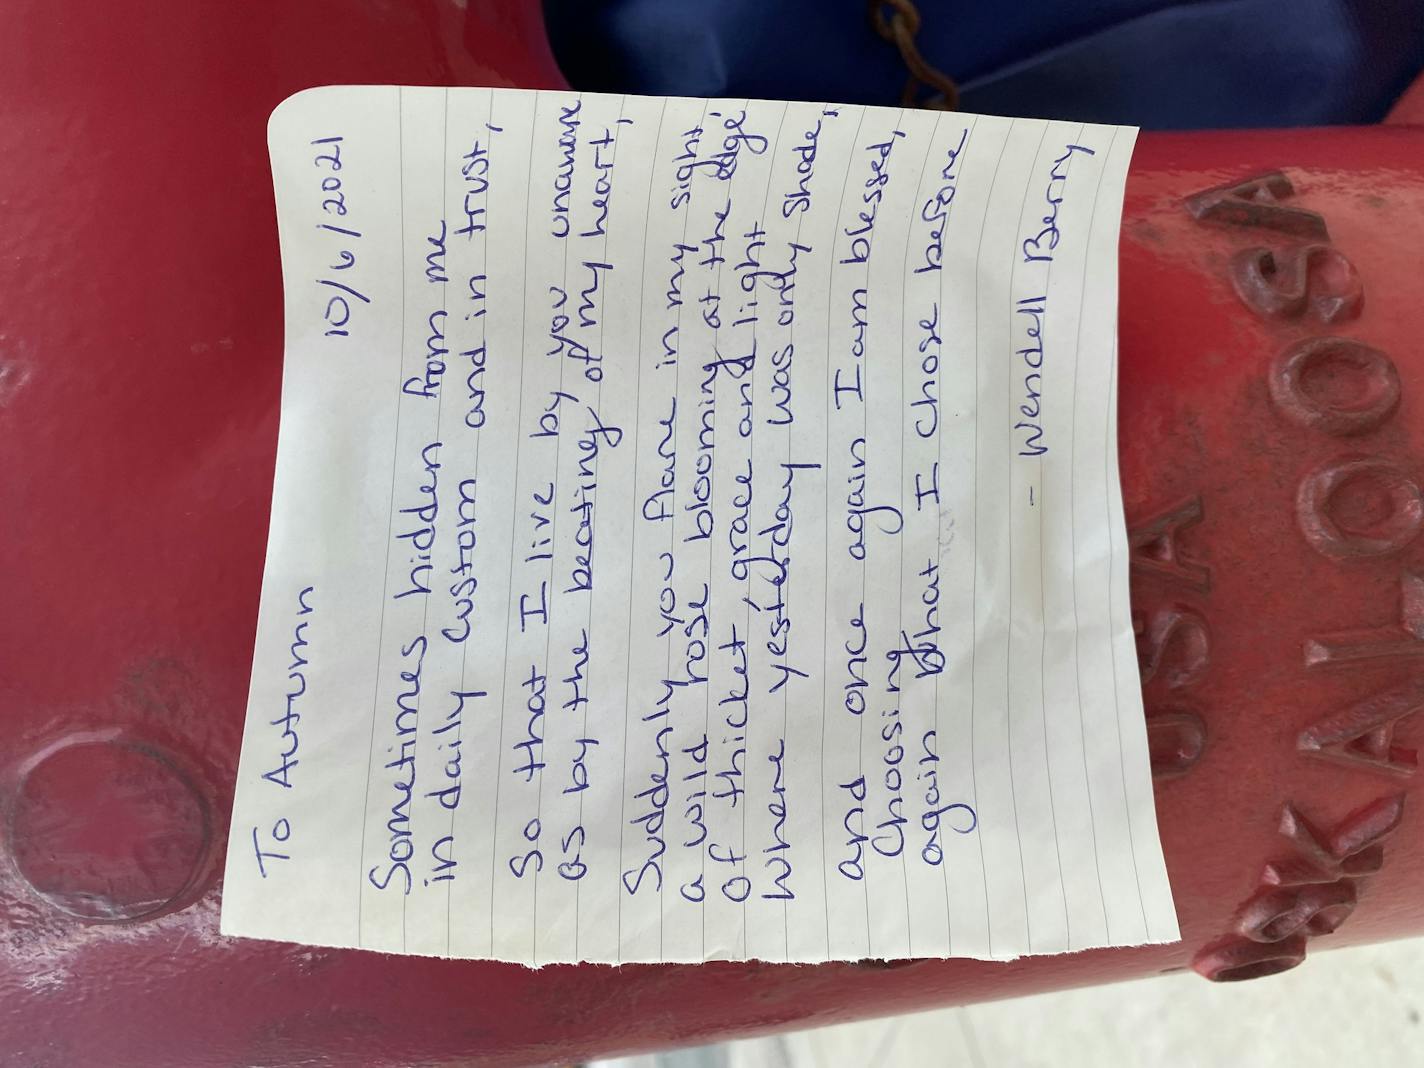 To Autumn 10/6/2021
Sometimes hidden from me
in daily custom and in trust,
So that I live by you unaware
as by the beating of my heart,
Suddenly you flare in my sight,
a wild rose blooming at the edge
of thicket, grace and light
where yesterday was only shade,
and once again I am blessed,
choosing
again what I chose before
- Wendell Berry
USA
OSKALOOSA